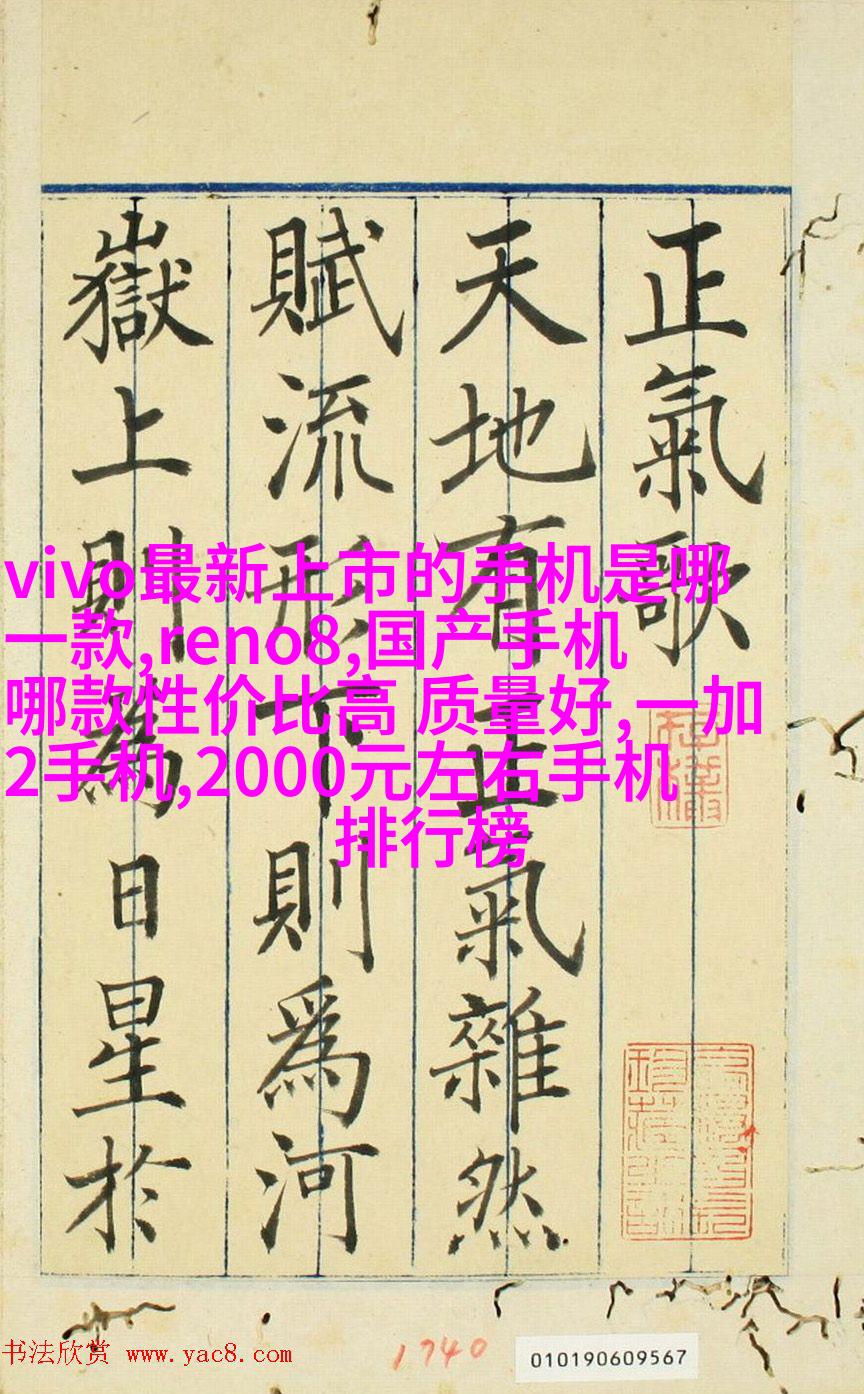 正氣歌
天地有正氣雜然
賦流形下則爲河
嶽上則爲日星於
vivo最新上市的手机是哪
一款,reno8,国产手机
哪款性价比高 质量好,一加
2手机,2000元左右手机
排行榜
书法欣赏 www.yac8.com
1740
010190609567